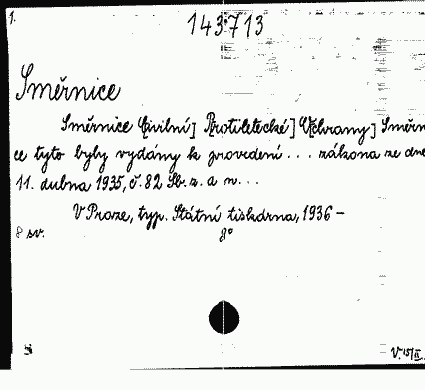 1.
143713
Směrnice
Směrnice C[ivilní] P[rotiletecké] O[chrany] Směrni
ce tyto byly vydány k provedení ... zákona ze dne
11. dubna 1935, č. 82 Sb. z. a n. ...
V Praze, typ. Státní tiskárna, 1936 -
8 sv. 8°